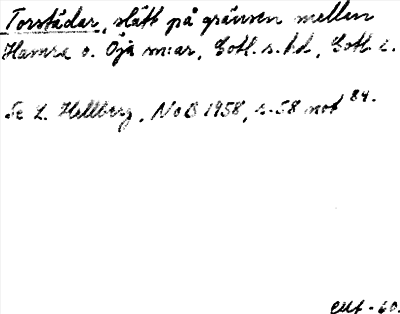 Torstädar, slätt på gränsen mellan
Hamra o. Öja sn:ar, Gotl. s. hd, Gotl. l.
Se L. Hellberg, NoB 1958, s. 58 not 84.
-60.